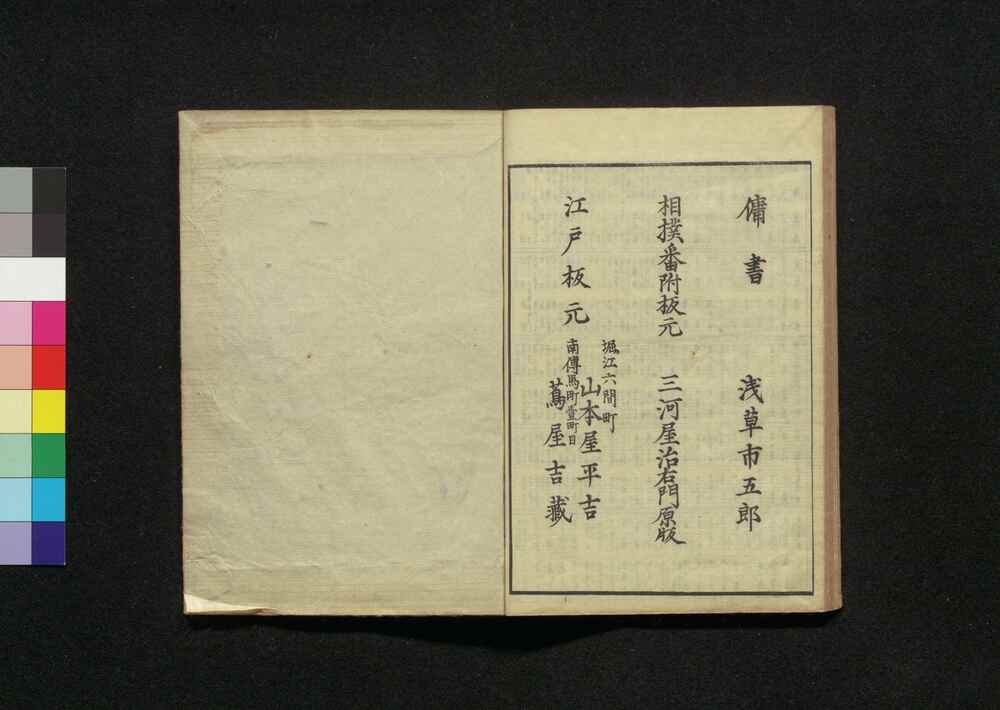 傭書　浅草市五郎
相撲番附板元　三河屋治右門原版
江戸板元
堀江六間町
山本屋平吉
南傳馬町壹町目
蔦屋吉藏